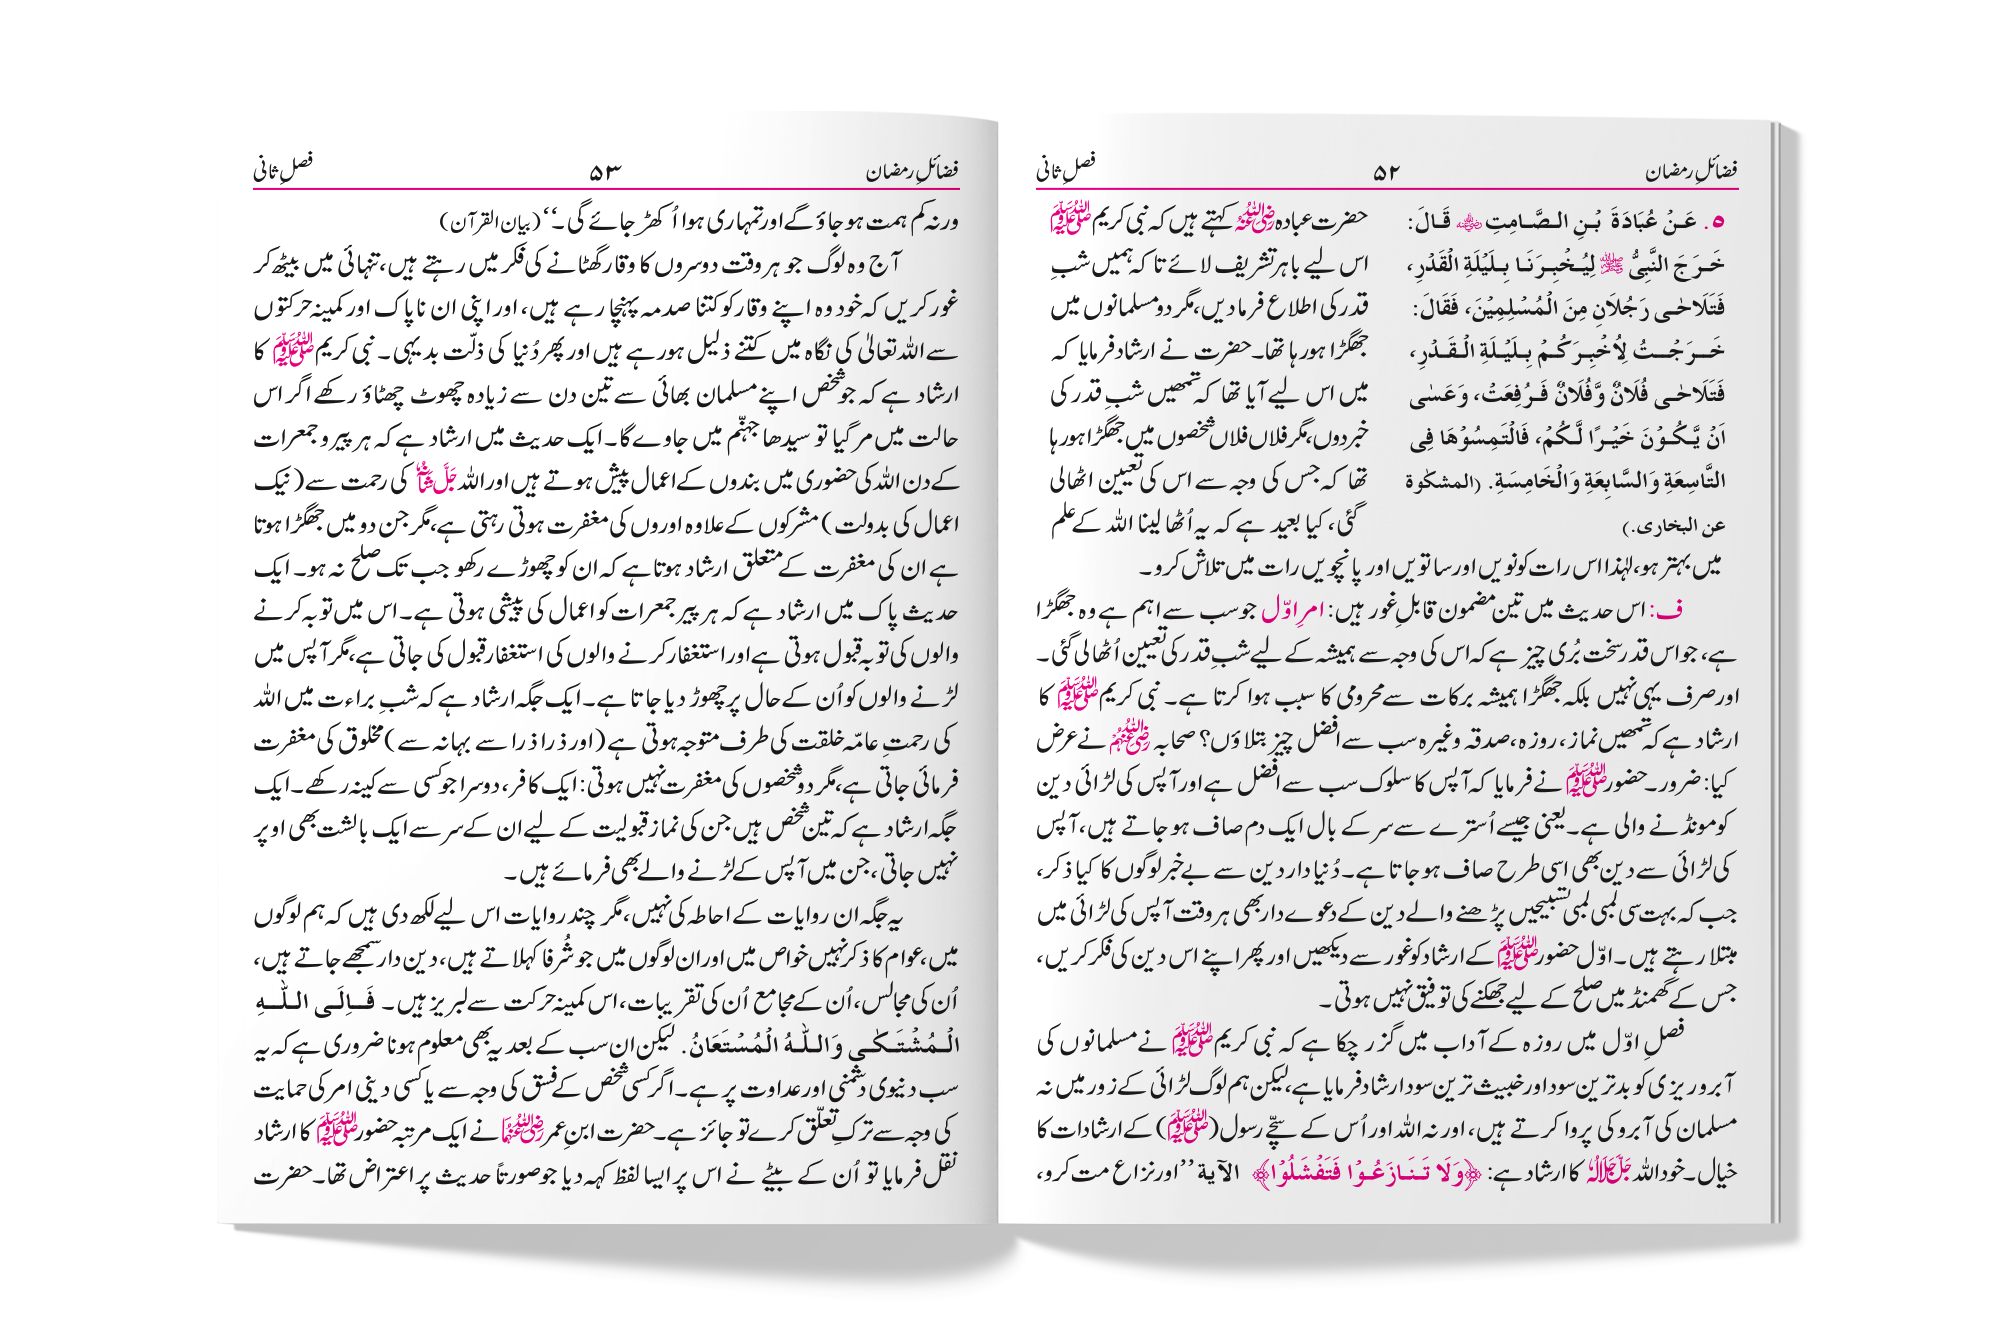 فضائلِ رمضان ۵۲ فصلِ ثانی
۵. عَنْ عُبَادَةَ بْنِ الصَّامِتِ رضی اللہ عنہ قَالَ:
خَرَجَ النَّبِيُّ ﷺ لِيُخْبِرَنَا بِلَيْلَةِ الْقَدْرِ،
فَتَلَاحٰى رَجُلَانِ مِنَ الْمُسْلِمِيْنَ، فَقَالَ:
خَرَجْتُ لِاُخْبِرَكُمْ بِلَيْلَةِ الْقَدْرِ،
فَتَلَاحٰى فُلَانٌ وَّفُلَانٌ فَرُفِعَتْ، وَعَسٰى
اَنْ يَّكُوْنَ خَيْرًا لَّكُمْ، فَالْتَمِسُوْهَا فِى
التَّاسِعَةِ وَالسَّابِعَةِ وَالْخَامِسَةِ. (المشكوٰة
عن البخارى.)
حضرت عبادہ رضی اللہ عنہ کہتے ہیں کہ نبی کریم ﷺ
اس لیے باہر تشریف لائے تاکہ ہمیں شبِ
قدر کی اطلاع فرمادیں، مگر دو مسلمانوں میں
جھگڑا ہورہا تھا۔ حضرت نے ارشاد فرمایا کہ
میں اس لیے آیا تھا کہ تمھیں شبِ قدر کی
خبر دوں، مگر فلاں فلاں شخصوں میں جھگڑا ہورہا
تھا کہ جس کی وجہ سے اس کی تعیین اٹھالی
گئی، کیا بعید ہے کہ یہ اُٹھا لینا اللہ کے علم
میں بہتر ہو، لہٰذا اس رات کو نویں اور ساتویں اور پانچویں رات میں تلاش کرو۔
ف: اس حدیث میں تین مضمون قابلِ غور ہیں: امرِ اوّل جو سب سے اہم ہے وہ جھگڑا
ہے، جو اس قدر سخت بُری چیز ہے کہ اس کی وجہ سے ہمیشہ کے لیے شبِ قدر کی تعیین اُٹھالی گئی۔
اور صرف یہی نہیں بلکہ جھگڑا ہمیشہ برکات سے محرومی کا سبب ہوا کرتا ہے۔ نبی کریم ﷺ کا
ارشاد ہے کہ تمھیں نماز، روزہ، صدقہ وغیرہ سب سے افضل چیز بتلاؤں؟ صحابہ رضی اللہ عنہم نے عرض
کیا: ضرور۔ حضور ﷺ نے فرمایا کہ آپس کا سلوک سب سے افضل ہے اور آپس کی لڑائی دین
کو مونڈنے والی ہے۔ یعنی جیسے اُسترے سے سر کے بال ایک دم صاف ہوجاتے ہیں، آپس
کی لڑائی سے دین بھی اسی طرح صاف ہوجاتا ہے۔ دُنیا دار دین سے بے خبر لوگوں کا کیا ذکر،
جب کہ بہت سی لمبی لمبی تسبیحیں پڑھنے والے دین کے دعوے دار بھی ہر وقت آپس کی لڑائی میں
مبتلا رہتے ہیں۔ اوّل حضور ﷺ کے ارشاد کو غور سے دیکھیں اور پھر اپنے اس دین کی فکر کریں،
جس کے گھمنڈ میں صلح کے لیے جھکنے کی توفیق نہیں ہوتی۔
فصلِ اوّل میں روزہ کے آداب میں گزر چکا ہے کہ نبی کریم ﷺ نے مسلمانوں کی
آبرو ریزی کو بدترین سود اور خبیث ترین سود ارشاد فرمایا ہے، لیکن ہم لوگ لڑائی کے زور میں نہ
مسلمان کی آبرو کی پروا کرتے ہیں، اور نہ اللہ اور اُس کے سچّے رسول (ﷺ) کے ارشادات کا
خیال۔ خود اللہ جَلَّ جَلَالُہٗ کا ارشاد ہے: ﴿وَلَا تَنَازَعُوْا فَتَفْشَلُوْا﴾ الآية ’’اور نزاع مت کرو،
فضائلِ رمضان ۵۳ فصلِ ثانی
ورنہ کم ہمت ہوجاؤ گے اور تمہاری ہوا اُکھڑ جائے گی۔‘‘ (بیان القرآن)
آج وہ لوگ جو ہر وقت دوسروں کا وقار گھٹانے کی فکر میں رہتے ہیں، تنہائی میں بیٹھ کر
غور کریں کہ خود وہ اپنے وقار کو کتنا صدمہ پہنچا رہے ہیں، اور اپنی ان ناپاک اور کمینہ حرکتوں
سے اللہ تعالیٰ کی نگاہ میں کتنے ذلیل ہورہے ہیں اور پھر دُنیا کی ذلّت بدیہی۔ نبی کریم ﷺ کا
ارشاد ہے کہ جو شخص اپنے مسلمان بھائی سے تین دن سے زیادہ چھوٹ چھٹاؤ رکھے اگر اس
حالت میں مر گیا تو سیدھا جہنّم میں جاوے گا۔ ایک حدیث میں ارشاد ہے کہ ہر پیر و جمعرات
کے دن اللہ کی حضوری میں بندوں کے اعمال پیش ہوتے ہیں اور اللہ جَلَّ شَانُہٗ کی رحمت سے (نیک
اعمال کی بدولت) مشرکوں کے علاوہ اوروں کی مغفرت ہوتی رہتی ہے، مگر جن دو میں جھگڑا ہوتا
ہے ان کی مغفرت کے متعلق ارشاد ہوتا ہے کہ ان کو چھوڑے رکھو جب تک صلح نہ ہو۔ ایک
حدیث پاک میں ارشاد ہے کہ ہر پیر جمعرات کو اعمال کی پیشی ہوتی ہے۔ اس میں توبہ کرنے
والوں کی توبہ قبول ہوتی ہے اور استغفار کرنے والوں کی استغفار قبول کی جاتی ہے، مگر آپس میں
لڑنے والوں کو اُن کے حال پر چھوڑ دیا جاتا ہے۔ ایک جگہ ارشاد ہے کہ شبِ براءت میں اللہ
کی رحمتِ عامّہ خلقت کی طرف متوجہ ہوتی ہے (اور ذرا ذرا سے بہانہ سے) مخلوق کی مغفرت
فرمائی جاتی ہے، مگر دو شخصوں کی مغفرت نہیں ہوتی: ایک کافر، دوسرا جو کسی سے کینہ رکھے۔ ایک
جگہ ارشاد ہے کہ تین شخص ہیں جن کی نماز قبولیت کے لیے ان کے سر سے ایک بالشت بھی اوپر
نہیں جاتی، جن میں آپس کے لڑنے والے بھی فرمائے ہیں۔
یہ جگہ ان روایات کے احاطہ کی نہیں، مگر چند روایات اس لیے لکھ دی ہیں کہ ہم لوگوں
میں، عوام کا ذکر نہیں خواص میں اور ان لوگوں میں جو شُرفا کہلاتے ہیں، دین دار سمجھے جاتے ہیں،
اُن کی مجالس، اُن کے مجامع اُن کی تقریبات، اس کمینہ حرکت سے لبریز ہیں۔ فَاِلَى اللّٰهِ
الْمُشْتَكٰى وَاللّٰهُ الْمُسْتَعَانُ. لیکن ان سب کے بعد یہ بھی معلوم ہونا ضروری ہے کہ یہ
سب دنیوی دشمنی اور عداوت پر ہے۔ اگر کسی شخص کے فسق کی وجہ سے یا کسی دینی امر کی حمایت
کی وجہ سے ترکِ تعلّق کرے تو جائز ہے۔ حضرت ابنِ عمر رضی اللہ عنہما نے ایک مرتبہ حضور ﷺ کا ارشاد
نقل فرمایا تو اُن کے بیٹے نے اس پر ایسا لفظ کہہ دیا جو صورتاً حدیث پر اعتراض تھا۔ حضرت